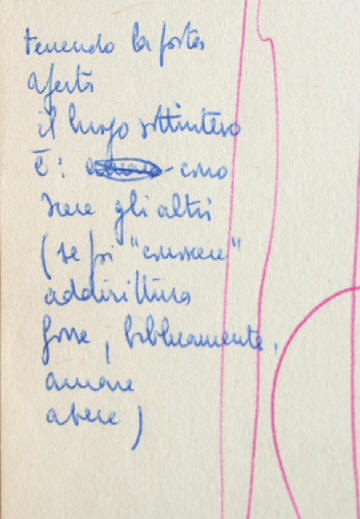 tenendo la porta
aperta
il luogo sottinteso
è: cono
scere gli altri
(se poi "conoscere"
addirittura
fosse, biblicamente,
amare
avere)